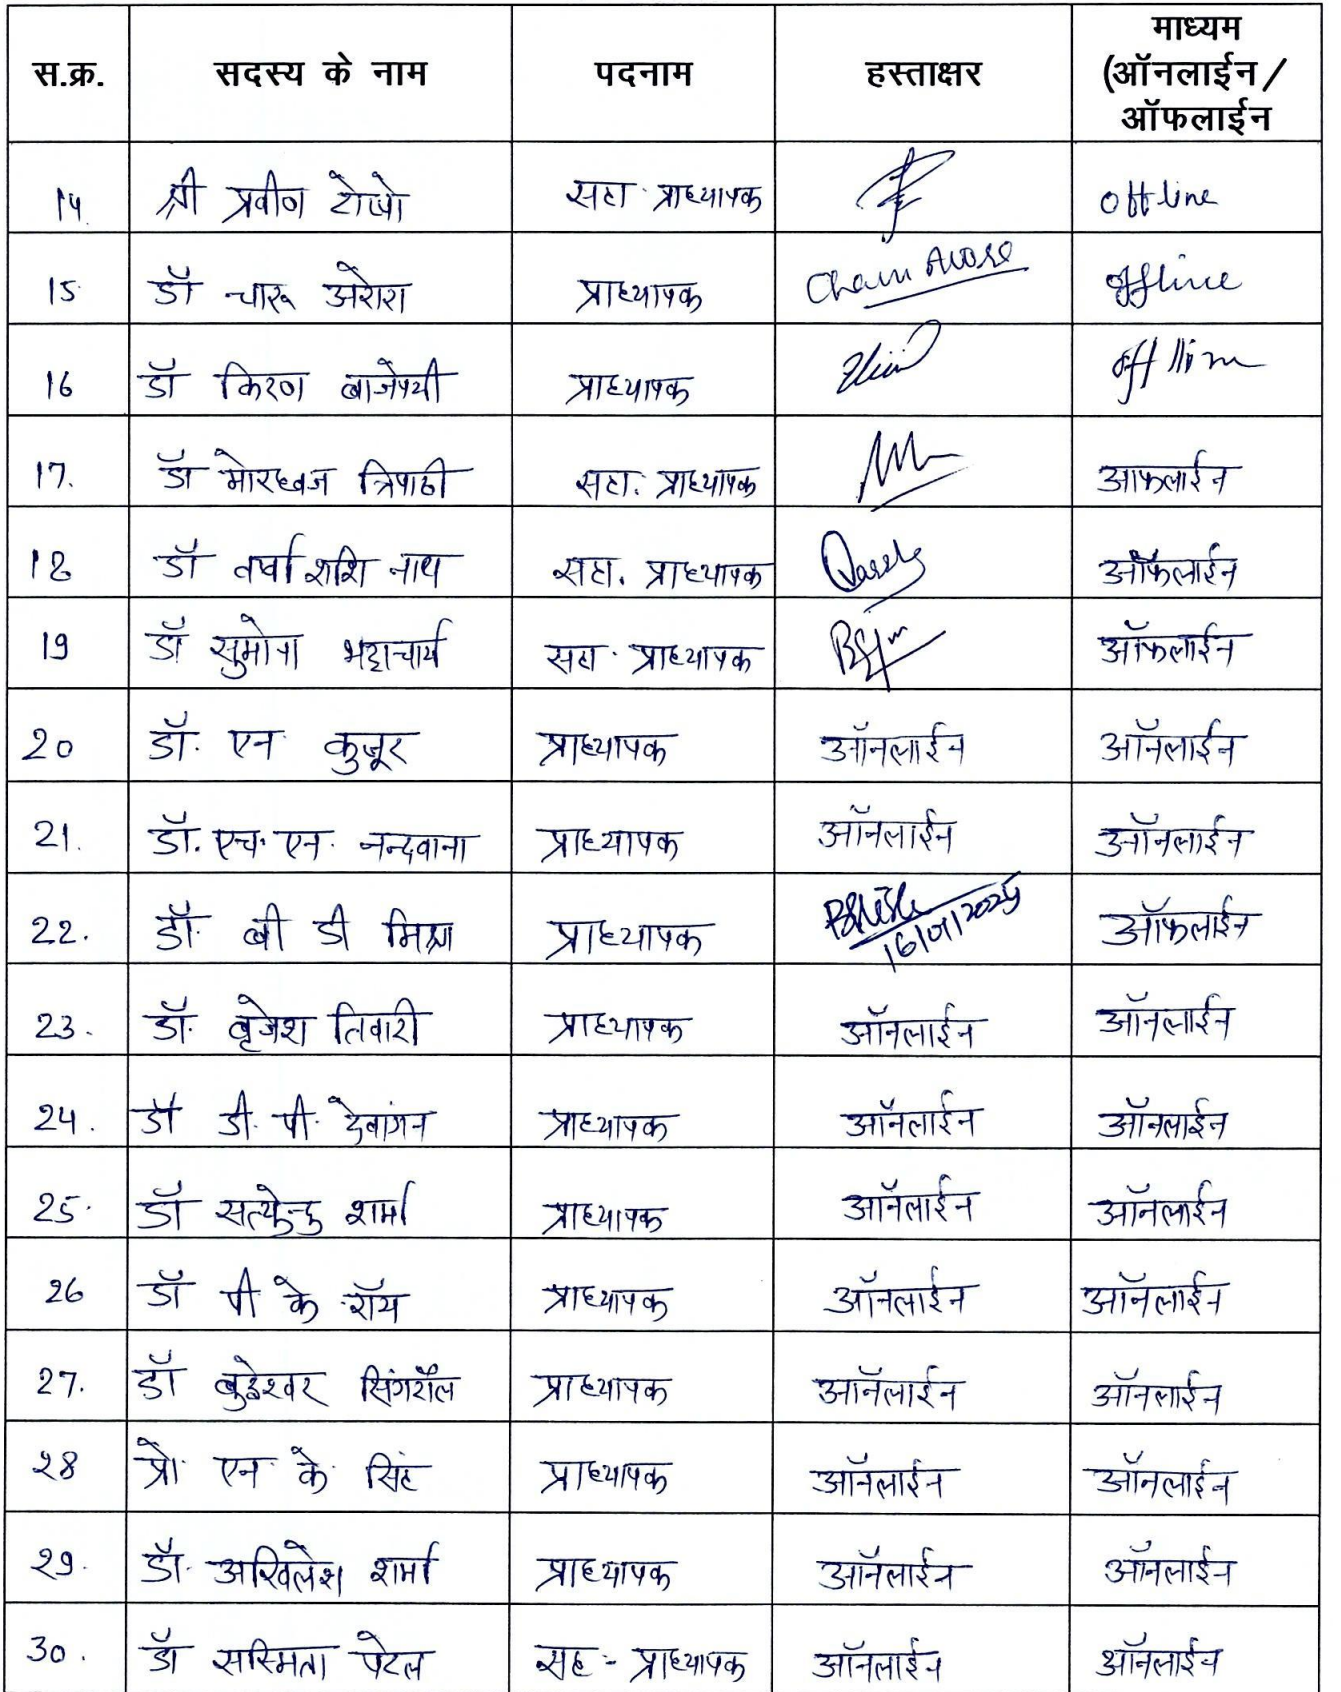 स.क्र. सदस्य के नाम पदनाम हस्ताक्षर माध्यम
(ऑनलाईन /
ऑफलाईन
14 श्री प्रवीण टोप्पो सहा. प्राध्यापक offline
15 डॉ चारू अरोरा प्राध्यापक Charu Arora offline
16 डॉ किरण बाजेपयी प्राध्यापक offline
17. डॉ मोरध्वज त्रिपाठी सहा. प्राध्यापक आफलाईन
18 डॉ वर्षा शशि नाथ सहा. प्राध्यापक ऑफलाईन
19 डॉ सुमोना भट्टाचार्य सहा. प्राध्यापक ऑफलाईन
20 डॉ. एन. कुजूर प्राध्यापक ऑनलाईन ऑनलाईन
21. डॉ. एच. एन. नन्दवाना प्राध्यापक ऑनलाईन ऑनलाईन
22. डॉ. बी डी मिश्रा प्राध्यापक 16/01/2025 ऑफलाईन
23. डॉ. बृजेश तिवारी प्राध्यापक ऑनलाईन ऑनलाईन
24. डॉ डी. पी. देवांगन प्राध्यापक ऑनलाईन ऑनलाईन
25. डॉ शर्मा प्राध्यापक ऑनलाईन ऑनलाईन
26 डॉ पी के रॉय प्राध्यापक ऑनलाईन ऑनलाईन
27. डॉ सिंगरौल प्राध्यापक ऑनलाईन ऑनलाईन
28 प्रो. एन. के. सिंह प्राध्यापक ऑनलाईन ऑनलाईन
29. डॉ. अखिलेश शर्मा प्राध्यापक ऑनलाईन ऑनलाईन
30. डॉ सस्मिता पटेल सह - प्राध्यापक ऑनलाईन ऑनलाईन